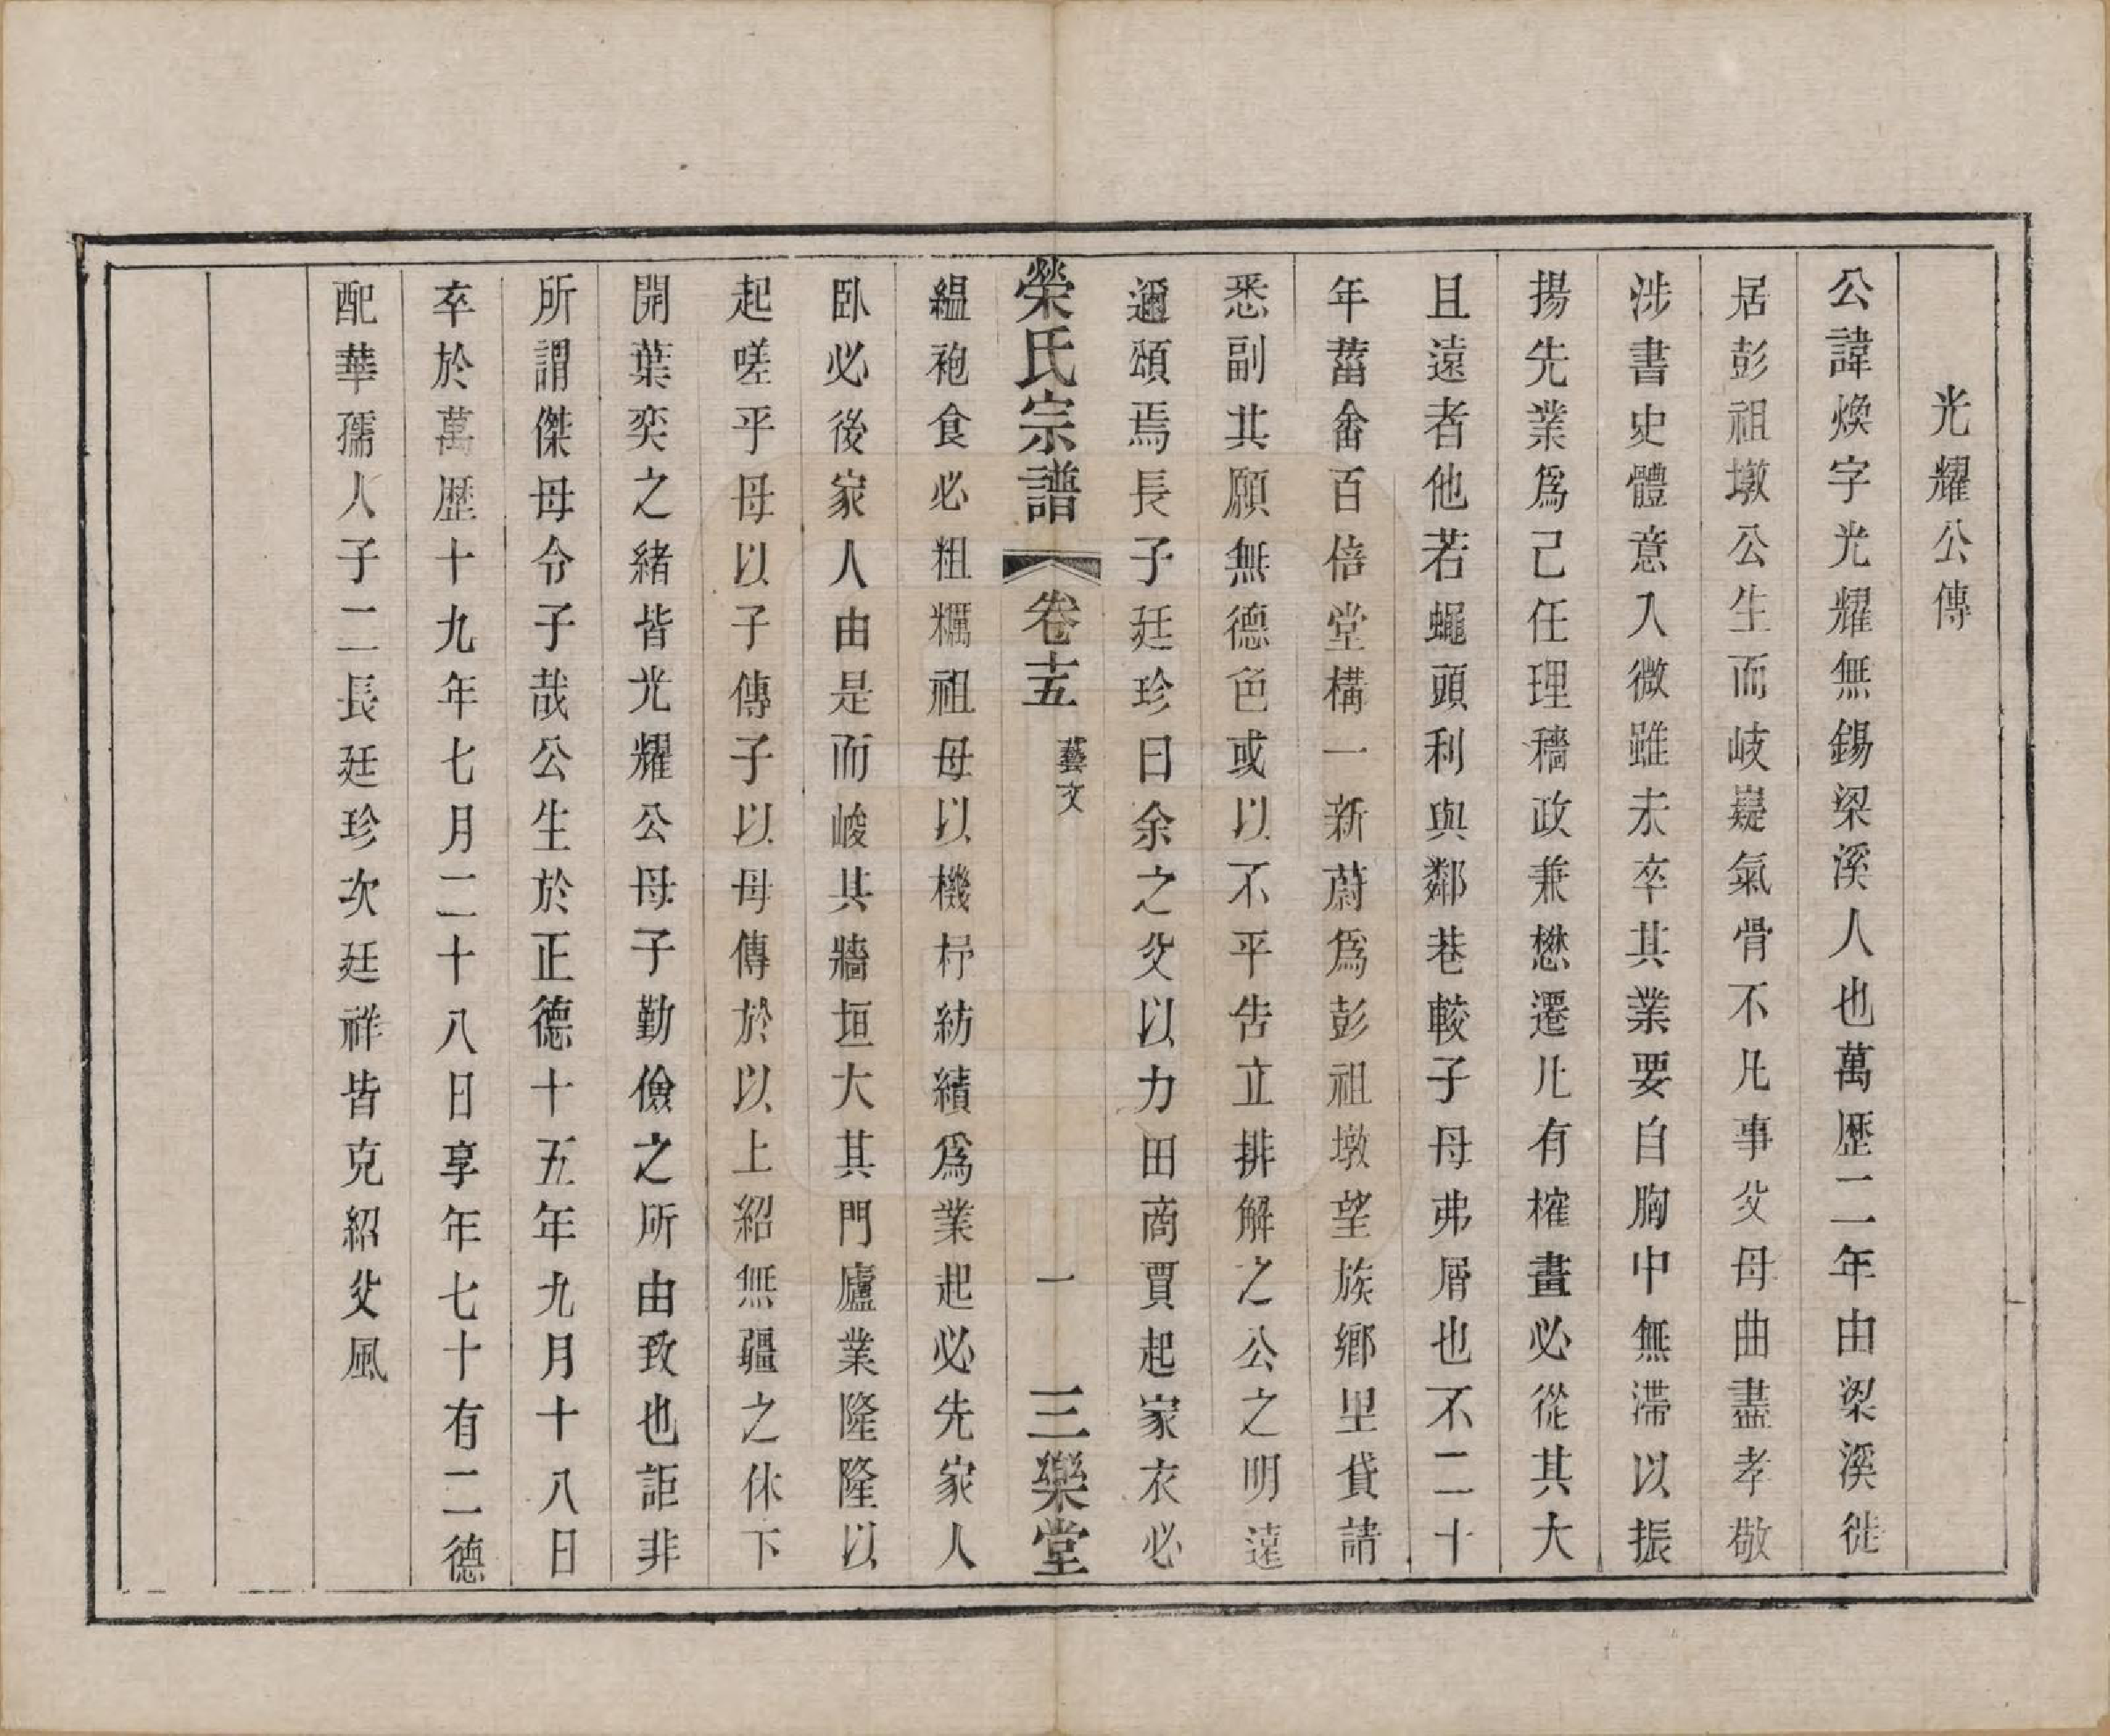 光耀公傳
公諱煥字光耀無錫梁溪人也萬歷二年由梁溪徙
居彭祖墩公生而岐嶷氣骨不凡事父母曲盡孝敬
涉書史體意入微雖未卒其業要自胸中無滯以振
揚先業爲己任理穡政兼懋遷凡有榷畫必從其大
且遠者他若蠅頭利與鄰巷較子母弗屑也不二十
年菑畬百倍堂構一新蔚爲彭祖墩望族鄉里貸請
悉副其願無德色或以不平告立排解之公之明遠
邇頌焉長子廷珍曰余之父以力田商賈起家衣必
榮氏宗譜 卷十五 藝文 一 三樂堂
縕袍食必粗糲祖母以機杼紡績爲業起必先家人
臥必後家人由是而峻其牆垣大其門廬業隆隆以
起嗟乎母以子傳子以母傳於以上紹無疆之休下
開葉奕之緒皆光耀公母子勤儉之所由致也詎非
所謂傑母令子哉公生於正德十五年九月十八日
卒於萬歷十九年七月二十八日享年七十有二德
配華孺人子二長廷珍次廷祥皆克紹父風